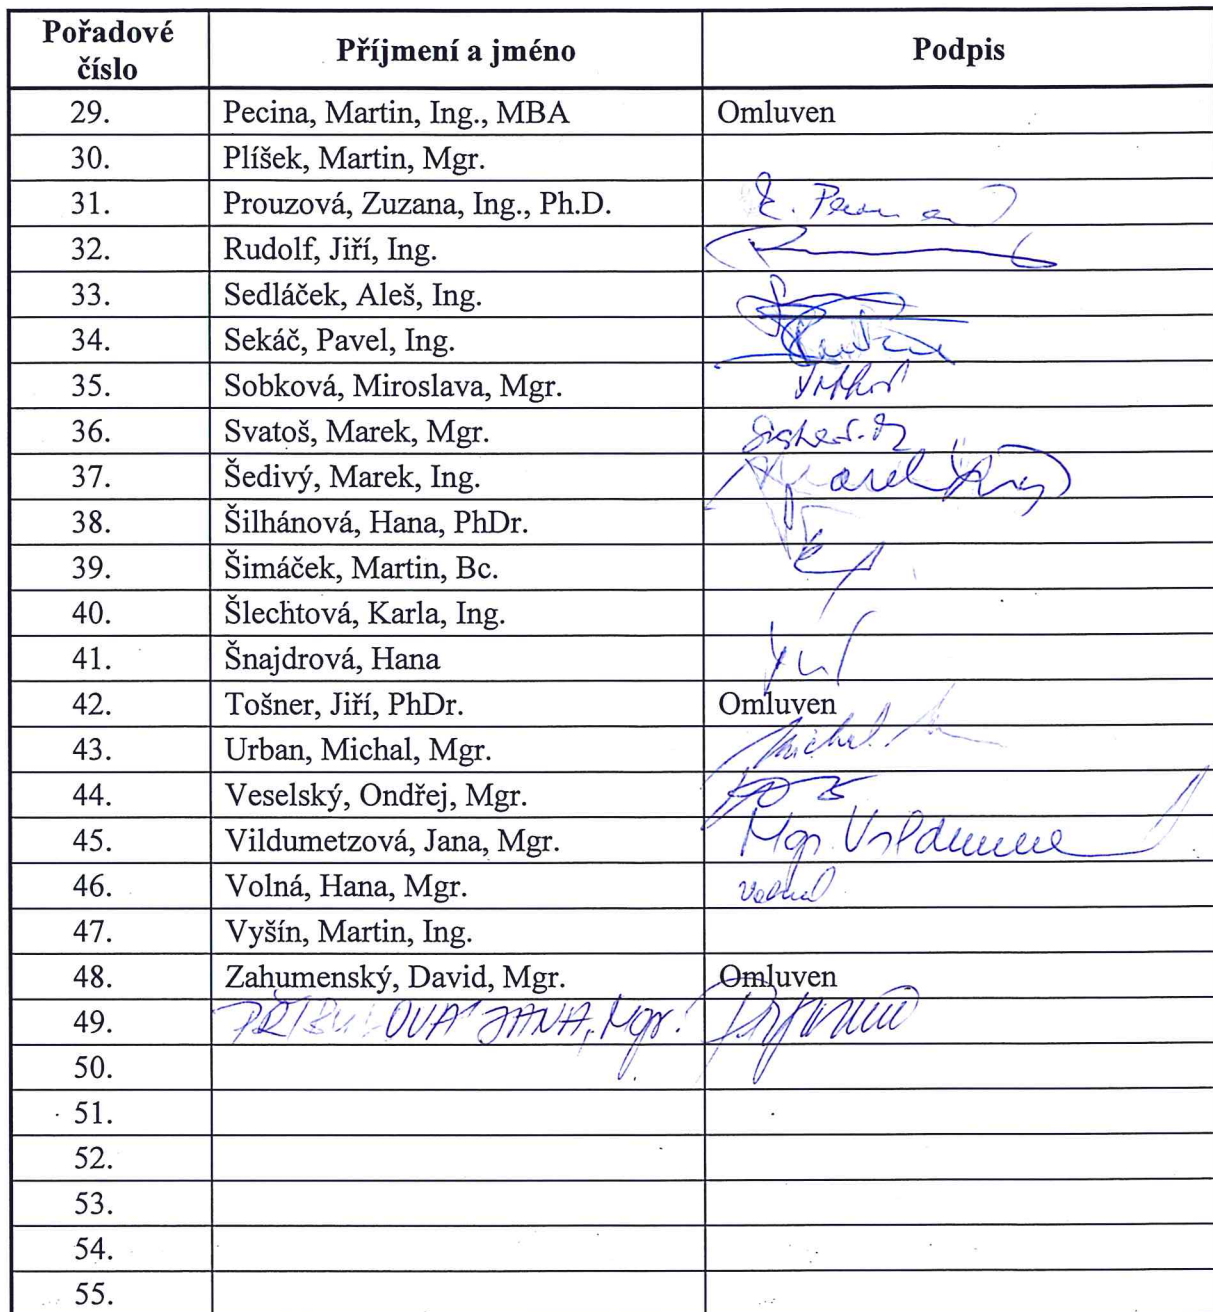 Pořadové číslo Příjmení a jméno Podpis
29. Pecina, Martin, Ing., MBA Omluven
30. Plíšek, Martin, Mgr.
31. Prouzová, Zuzana, Ing., Ph.D.
32. Rudolf, Jiří, Ing.
33. Sedláček, Aleš, Ing.
34. Sekáč, Pavel, Ing.
35. Sobková, Miroslava, Mgr.
36. Svatoš, Marek, Mgr.
37. Šedivý, Marek, Ing.
38. Šilhánová, Hana, PhDr.
39. Šimáček, Martin, Bc.
40. Šlechtová, Karla, Ing.
41. Šnajdrová, Hana
42. Tošner, Jiří, PhDr. Omluven
43. Urban, Michal, Mgr. Michal
44. Veselský, Ondřej, Mgr.
45. Vildumetzová, Jana, Mgr. Mgr.
46. Volná, Hana, Mgr.
47. Vyšín, Martin, Ing.
48. Zahumenský, David, Mgr. Omluven
49. JANA, Mgr.
50.
51.
52.
53.
54.
55.